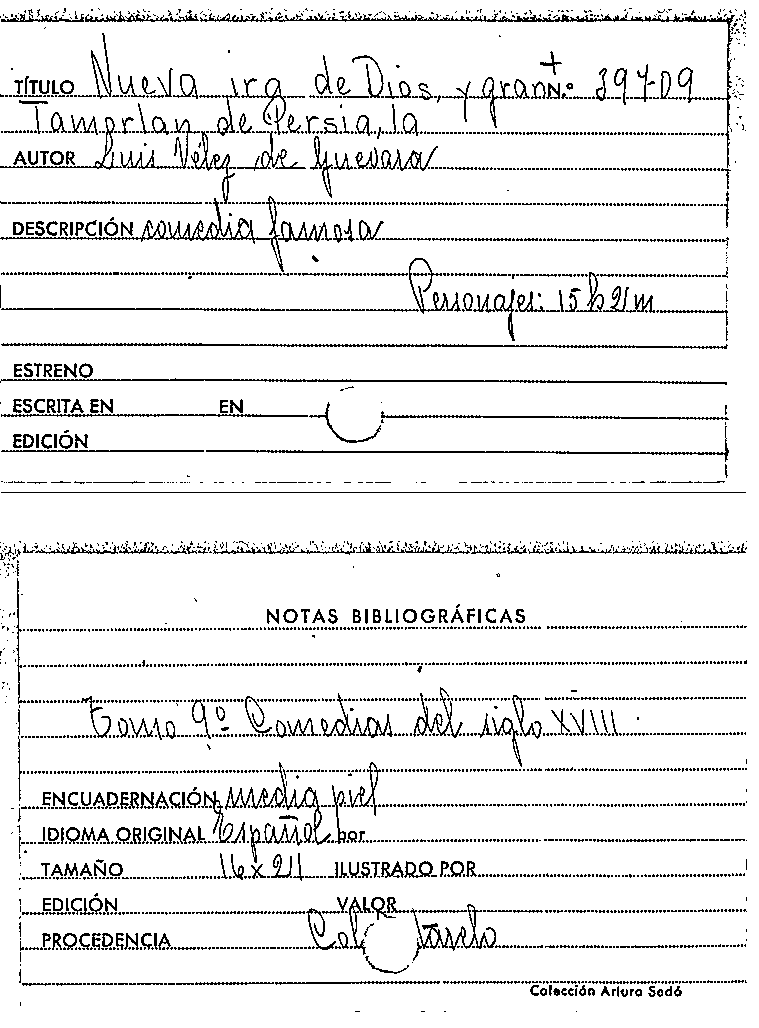 TÍTULO Nueva ira de Dios, y gran N.º 397-09
Tamorlan de Persia, la
AUTOR Luis Vélez de Guevara
DESCRIPCIÓN comedia famosa
Personajes: 15 h 2 m
ESTRENO
ESCRITA EN EN
EDICIÓN
NOTAS BIBLIOGRÁFICAS
Tomo 9º Comedias del siglo XVIII.
ENCUADERNACIÓN media piel
IDIOMA ORIGINAL Español por
TAMAÑO 16 x 21 ILUSTRADO POR
EDICIÓN VALOR
PROCEDENCIA
Colección Arturo Sedó